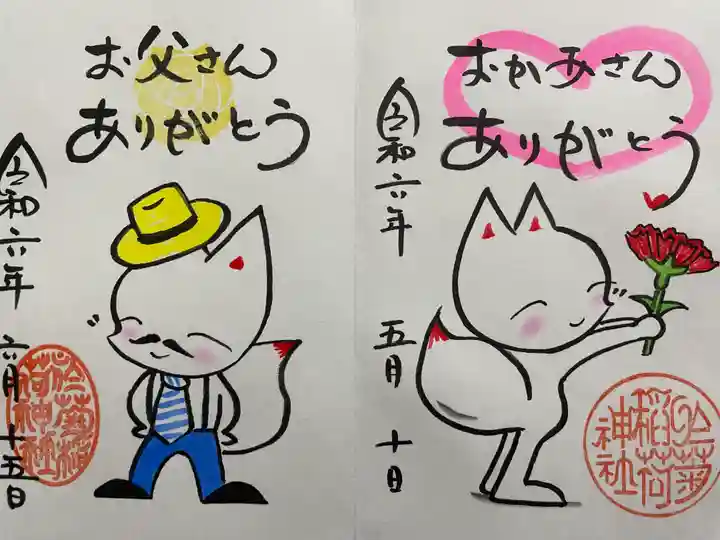 お父さん
ありがとう
令和六年 六月 十五日
おかあさん
ありがとう
令和六年 五月 十日
稲荷神社